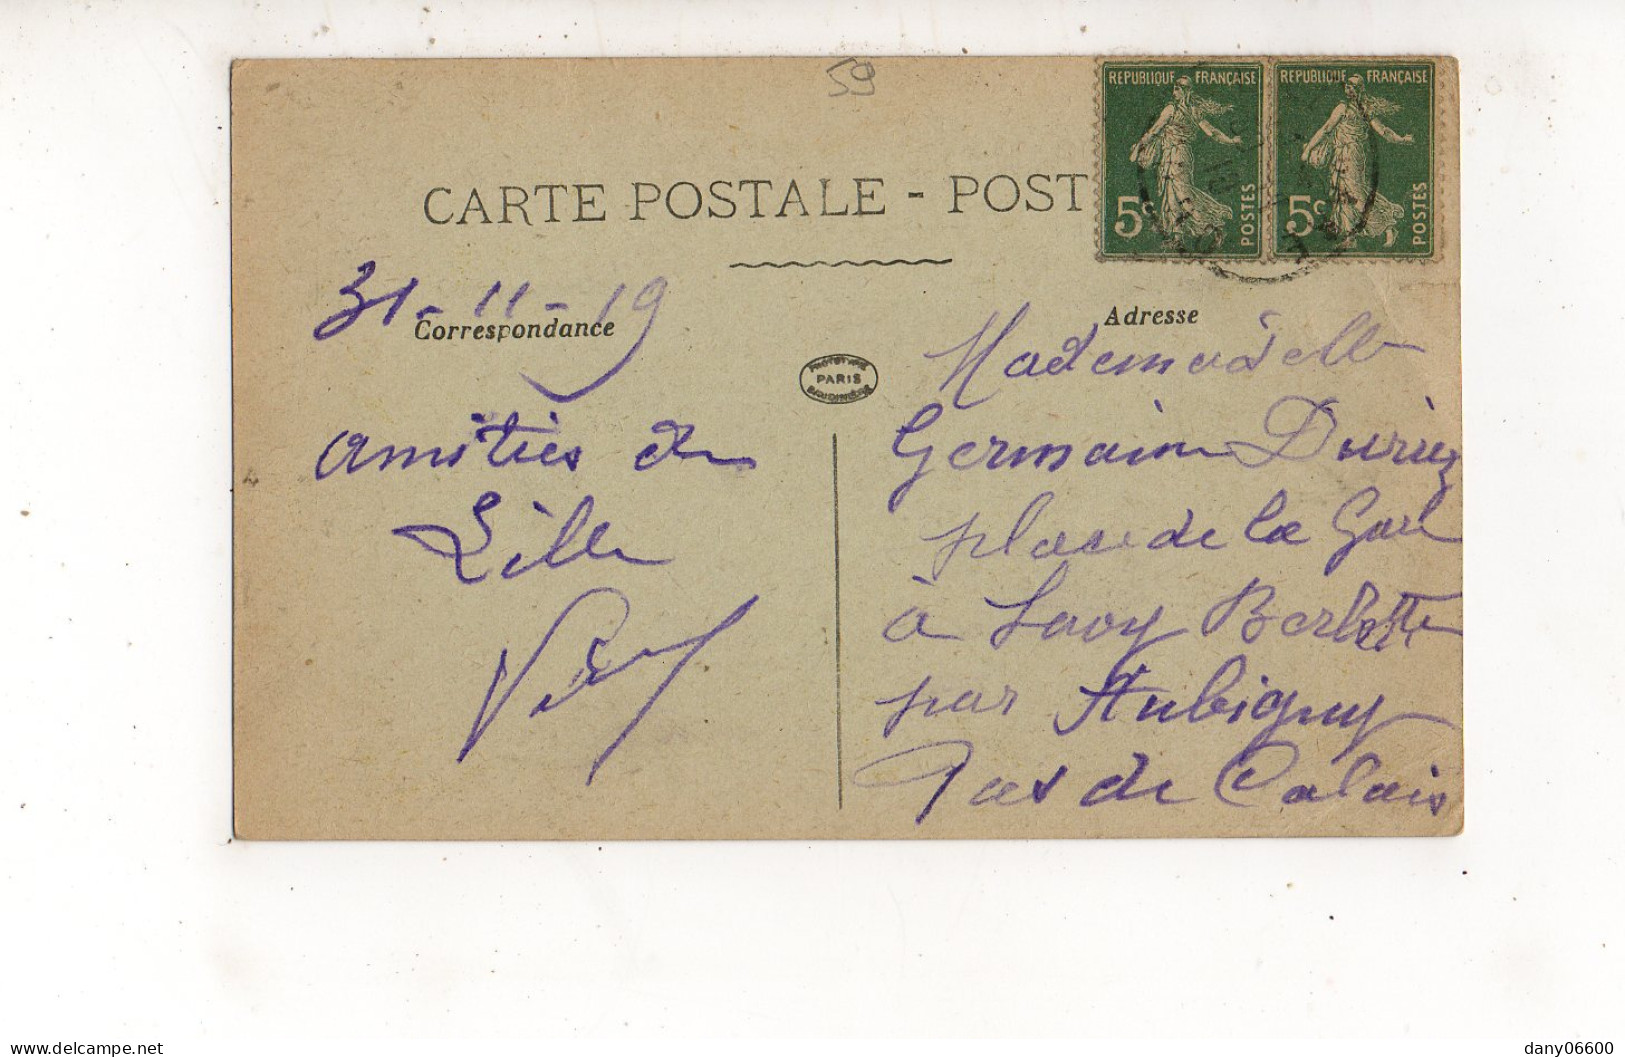 59
REPUBLIQUE FRANÇAISE
5c POSTES
REPUBLIQUE FRANÇAISE
5c POSTES
CARTE POSTALE - POST
31-11-19
Correspondance
Adresse
PARIS
amitiés de
Lille
Mademoiselle
Germaine Duriez
place de la Gare
à Savy Berlette
par Aubigny
Pas de Calais
delcampe.net
dany06600